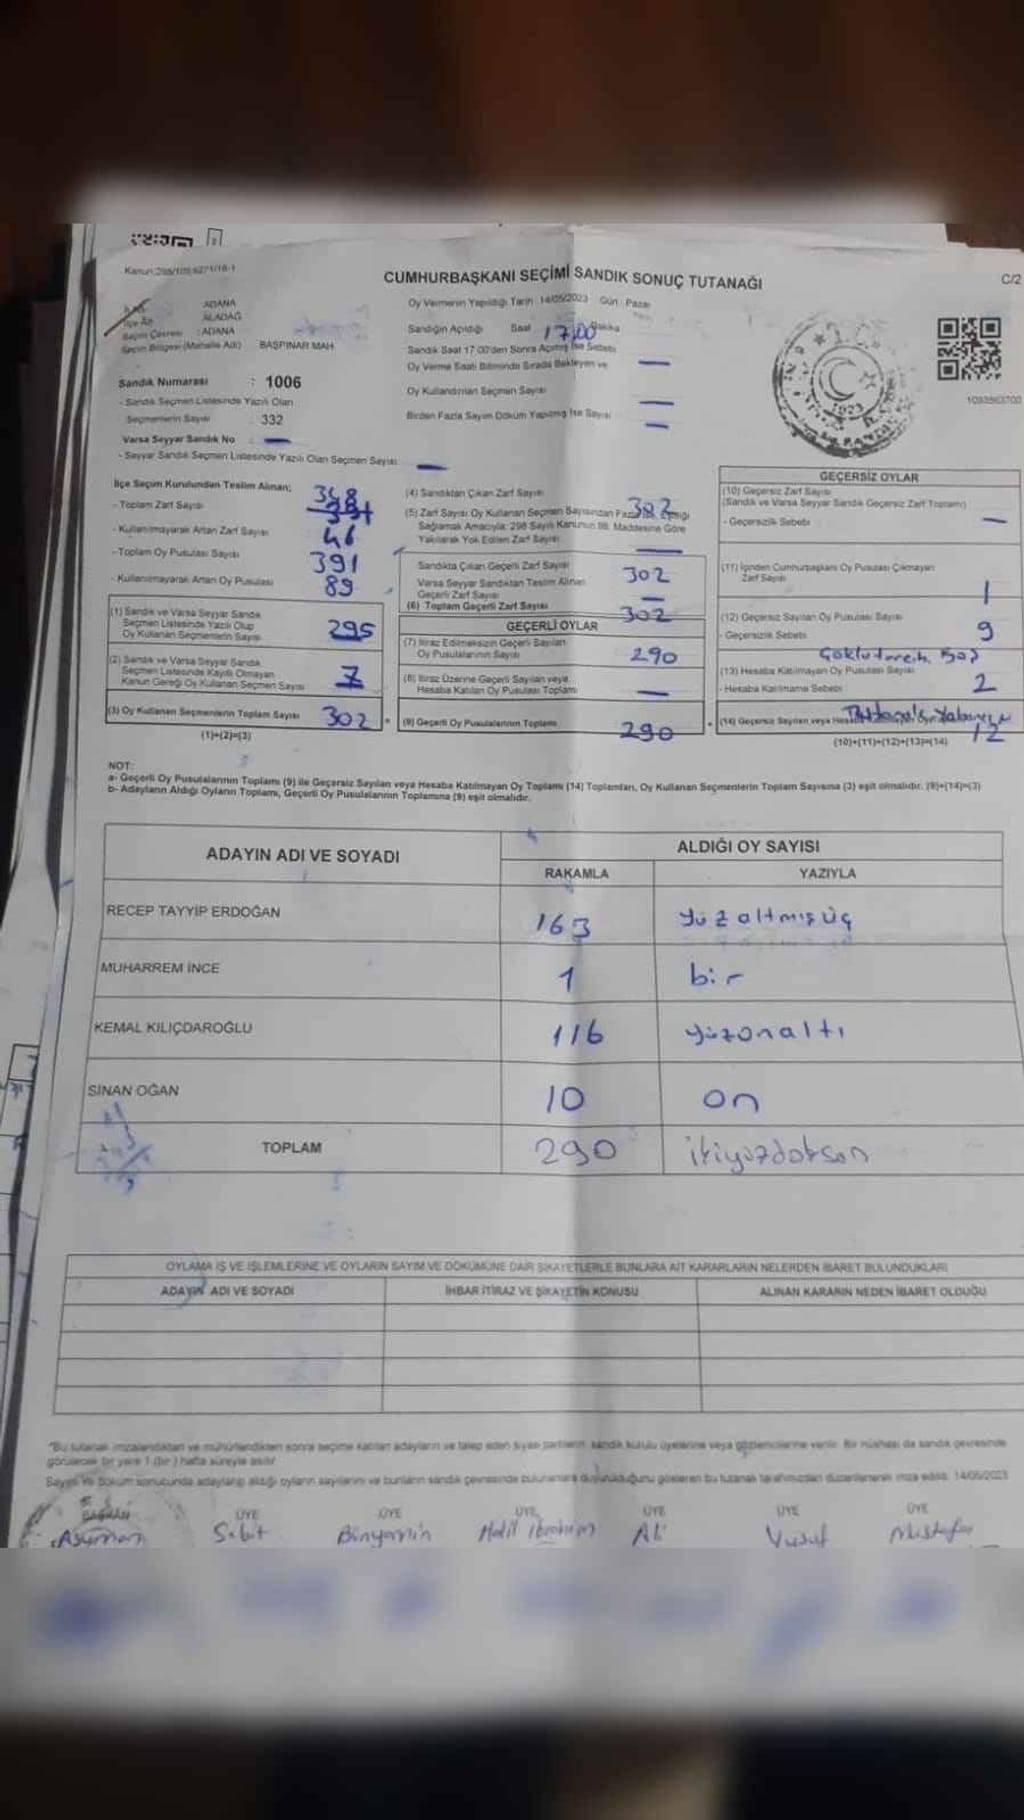 Kanun:298/105,6271/18-1
CUMHURBAŞKANI SEÇİMİ SANDIK SONUÇ TUTANAĞI
C/2
ADANA
İlçe Adı ALADAĞ
Seçim Çevresi : ADANA
Seçim Bölgesi (Mahalle Adı) BAŞPINAR MAH.
Sandık Numarası : 1006
- Sandık Seçmen Listesinde Yazılı Olan
Seçmenlerin Sayısı : 332
Varsa Seyyar Sandık No : —
- Seyyar Sandık Seçmen Listesinde Yazılı Olan Seçmen Sayısı —
Oy Vermenin Yapıldığı Tarih 14/05/2023 Gün : Pazar
Sandığın Açıldığı Saat 17,00 Dakika
Sandık Saat 17.00'den Sonra Açılmış İse Sebebi
Oy Verme Saati Bitiminde Sırada Bekleyen ve —
Oy Kullandırılan Seçmen Sayısı —
Birden Fazla Sayım Döküm Yapılmış İse Sayısı —
1923
1093563700
İlçe Seçim Kurulundan Teslim Alınan;
- Toplam Zarf Sayısı 348
- Kullanılmayarak Artan Zarf Sayısı 46
- Toplam Oy Pusulası Sayısı 391
- Kullanılmayarak Artan Oy Pusulası 89
(1) Sandık ve Varsa Seyyar Sandık
Seçmen Listesinde Yazılı Olup
Oy Kullanan Seçmenlerin Sayısı 295
(2) Sandık ve Varsa Seyyar Sandık
Seçmen Listesinde Kayıtlı Olmayan
Kanun Gereği Oy Kullanan Seçmen Sayısı 7
(3) Oy Kullanan Seçmenlerin Toplam Sayısı 302
(1)+(2)=(3)
(4) Sandıktan Çıkan Zarf Sayısı 302
(5) Zarf Sayısı Oy Kullanan Seçmen Sayısından Fazla İse, Eşitliği
Sağlamak Amacıyla; 298 Sayılı Kanunun 98. Maddesine Göre
Yakılarak Yok Edilen Zarf Sayısı —
Sandıkta Çıkan Geçerli Zarf Sayısı 302
Varsa Seyyar Sandıktan Teslim Alınan
Geçerli Zarf Sayısı —
(6) Toplam Geçerli Zarf Sayısı 302
GEÇERLİ OYLAR
(7) İtiraz Edilmeksizin Geçerli Sayılan
Oy Pusulalarının Sayısı 290
(8) İtiraz Üzerine Geçerli Sayılan veya
Hesaba Katılan Oy Pusulası Toplamı —
(9) Geçerli Oy Pusulalarının Toplamı 290
GEÇERSİZ OYLAR
(10) Geçersiz Zarf Sayısı
(Sandık ve Varsa Seyyar Sandık Geçersiz Zarf Toplamı)
- Geçersizlik Sebebi —
(11) İçinden Cumhurbaşkanı Oy Pusulası Çıkmayan
Zarf Sayısı 1
(12) Geçersiz Sayılan Oy Pusulası Sayısı 9
- Geçersizlik Sebebi
(13) Hesaba Katılmayan Oy Pusulası Sayısı 2
- Hesaba Katılmama Sebebi
(14) Geçersiz Sayılan veya 12
(10)+(11)+(12)+(13)=(14)
NOT:
a- Geçerli Oy Pusulalarının Toplamı (9) ile Geçersiz Sayılan veya Hesaba Katılmayan Oy Toplamı (14) Toplamları, Oy Kullanan Seçmenlerin Toplam Sayısına (3) eşit olmalıdır. (9)+(14)=(3)
b- Adayların Aldığı Oyların Toplamı, Geçerli Oy Pusulalarının Toplamına (9) eşit olmalıdır.
ADAYIN ADI VE SOYADI
ALDIĞI OY SAYISI
RAKAMLA YAZIYLA
RECEP TAYYİP ERDOĞAN 163 yüzaltmışüç
MUHARREM İNCE 1 bir
KEMAL KILIÇDAROĞLU 116 yüzonaltı
SİNAN OĞAN 10 on
TOPLAM 290 ikiyüzdoksan
OYLAMA İŞ VE İŞLEMLERİNE VE OYLARIN SAYIM VE DÖKÜMÜNE DAİR ŞİKAYETLERLE BUNLARA AİT KARARLARIN NELERDEN İBARET BULUNDUKLARI
ADAYIN ADI VE SOYADI İHBAR İTİRAZ VE ŞİKAYETİN KONUSU ALINAN KARARIN NEDEN İBARET OLDUĞU
"Bu tutanak imzalandıktan ve mühürlendikten sonra seçime katılan adayların ve talep eden siyasi partilerin sandık kurulu üyelerine veya gözlemcilerine verilir. Bir nüshası da sandık çevresinde
görülecek bir yere 1 (bir) hafta süreyle asılır.
Sayım ve döküm sonucunda adayların aldığı oyların sayılarını ve bunların sandık çevresinde bulunanlara duyurulduğunu gösteren bu tutanak tarafımızdan düzenlenerek imza edildi. 14/05/2023
BAŞKAN ÜYE ÜYE ÜYE ÜYE ÜYE ÜYE
Sabit Binyamin Halil İbrahim Ali Yusuf Mustafa